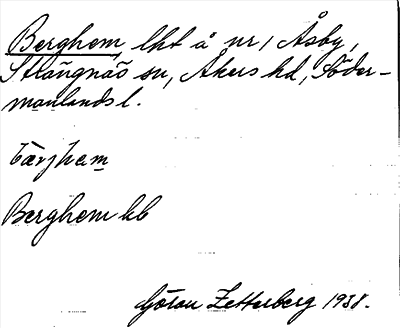 Berghem, lht å nr 1 Åsby,
Strängnäs sn, Åkers hd, Söder-
manlands l.
bærjhem
Berghem kb
Göran Zetterberg 1938.